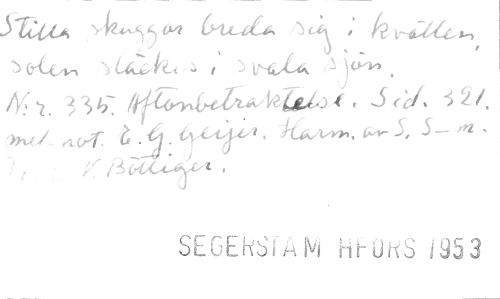 Stilla skuggor breda sig i kvällen,
solen släckes i svala sjön.
N:r. 335. Aftonbetraktelse. Sid. 321.
mel. not. E. G. Geijer. Harm. av S. S-m.
V. Böttiger.
SEGERSTAM HFORS 1953